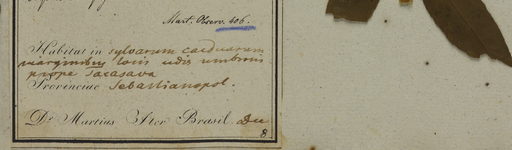 Mart. Observ. 406.
Habitat in sylvarum caeduarum
marginibus locis udis umbrosis
prope Sacasava
Provinciae Sebastianopol.
Dr Martius Iter Brasil. Dec
8